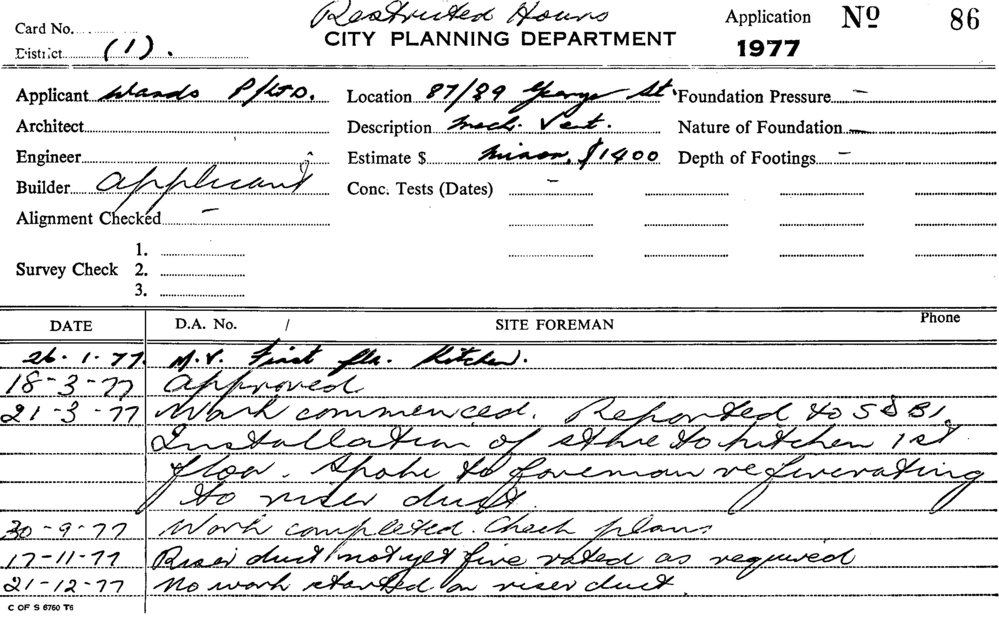 Restricted Hours
Card No.
CITY PLANNING DEPARTMENT
Application No 86
District (1).
1977
Applicant Wands P/LTD. Location 87/89 George St. Foundation Pressure -
Architect Description Mech. Vent. Nature of Foundation -
Engineer Estimate $ minor, $1400 Depth of Footings -
Builder applicant Conc. Tests (Dates) -
Alignment Checked -
1.
Survey Check 2.
3.
DATE D.A. No. / SITE FOREMAN Phone
26-1-77. M.V. First flr. Kitchen.
18-3-77 Approved
21-3-77 Work commenced. Reported to S & B I.
Installation of stove to kitchen 1st
floor. Spoke to foreman re firerating
to riser duct.
30-9-77 Work completed. Check plans
17-11-77 Riser duct not yet fire rated as required
21-12-77 No work started on riser duct.
C OF S 6760 T6